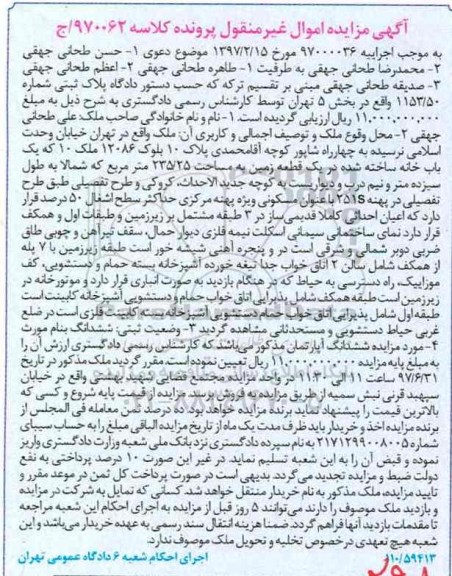 آگهی مزایده اموال غیرمنقول پرونده کلاسه ۹۷۰۰۶۲/ج
به موجب اجراییه ۹۷۰۰۰۰۳۶ مورخ ۱۳۹۷/۲/۱۵ موضوع دعوی ۱- حسن طحانی جهقی
۲- محمدرضا طحانی جهقی به طرفیت ۱- طاهره طحانی جهقی ۲- اعظم طحانی جهقی
۳- صدیقه طحانی جهقی مبنی بر تقسیم ترکه که حسب دستور دادگاه پلاک ثبتی شماره
۱۱۵۳/۵۰ واقع در بخش ۵ تهران توسط کارشناس رسمی دادگستری به شرح ذیل به مبلغ
۱۱,۰۰۰,۰۰۰,۰۰۰ ریال ارزیابی گردیده است. ۱- نام و نام خانوادگی صاحب ملک: علی طحانی
جهقی ۲- محل وقوع ملک و توصیف اجمالی و کاربری آن: ملک واقع در تهران خیابان وحدت
اسلامی نرسیده به چهارراه شاپور کوچه آقامحمدی پلاک ۱۰ بلوک ۱۲۰۸۶ ملک ۱۰ که یک
باب خانه ساخته شده در یک قطعه زمین به مساحت ۲۳۵/۲۵ متر مربع که شمالا به طول
سیزده متر و نیم درب و دیواریست به کوچه جدید الاحداث، کروکی و طرح تفصیلی طبق طرح
تفصیلی در پهنه ۲۵۱S با عنوان مسکونی ویژه پهنه مرکزی حداکثر سطح اشغال ۵۰ درصد قرار
دارد که اعیان احداثی کاملا قدیمی ساز در ۳ طبقه مشتمل بر زیرزمین و طبقات اول و همکف
قرار دارد نمای ساختمانی سیمانی اسکلت نیمه فلزی دیوار حمال، سقف تیرآهن و چوبی طاق
ضربی دوبر شمالی و شرقی است در و پنجره آهنی شیشه خور است طبقه زیرزمین با ۷ پله
از همکف شامل سالن ۲ اتاق خواب جدا تیغه خورده آشپزخانه بسته حمام و دستشویی، کف
موزاییک، راه دسترسی به حیاط که در هنگام بازدید به صورت انباری قرار دارد و موتورخانه در
زیرزمین است طبقه همکف شامل پذیرایی اتاق خواب حمام و دستشویی آشپزخانه کابینت است
طبقه اول شامل پذیرایی اتاق خواب حمام دستشویی آشپزخانه بسته کابینت فلزی است در ضلع
غربی حیاط دستشویی و مستحدثاتی مشاهده گردید ۳- وضعیت ثبتی: ششدانگ بنام مورث
۴- مورد مزایده ششدانگ آپارتمان مذکور می‌باشد که کارشناس رسمی دادگستری ارزش آن را
به مبلغ پایه مزایده ۱۱,۰۰۰,۰۰۰,۰۰۰ ریال تعیین نموده است. مقرر گردید ملک مذکور در تاریخ
۹۷/۶/۳۱ ساعت ۱۱ الی ۱۱:۳۰ در واحد مزایده مجتمع قضایی شهید بهشتی واقع در خیابان
سپهبد قرنی نبش سمیه از طریق مزایده به فروش برسد. مزایده از قیمت پایه شروع و کسی که
بالاترین قیمت را پیشنهاد نماید برنده مزایده خواهد بود. ده درصد ثمن معامله فی المجلس از
برنده مزایده اخذ و خریدار باید ظرف مدت یک ماه از تاریخ مزایده الباقی مبلغ را به حساب سیبای
شماره ۲۱۷۱۲۹۹۰۰۸۰۰۵ به نام سپرده دادگستری نزد بانک ملی شعبه وزارت دادگستری واریز
نموده و قبض آن را به این شعبه تسلیم نماید. در غیر این صورت ۱۰ درصد پرداختی به نفع
دولت ضبط و مزایده تجدید می گردد. بدیهی است در صورت پرداخت کل ثمن در موعد مقرر و
تایید مزایده، ملک مذکور به نام خریدار منتقل خواهد شد. کسانی که تمایل به شرکت در مزایده
و بازدید ملک موصوف را دارند می‌توانند ۵ روز قبل از مزایده به اجرای احکام این شعبه مراجعه
تا مقدمات بازدید آنها فراهم گردد. ضمنا هزینه انتقال سند رسمی به عهده خریدار می‌باشد و این
شعبه هیچ تعهدی در خصوص تخلیه و تحویل ملک موصوف ندارد.
۱۱۰/۵۹۴۱۳ اجرای احکام شعبه ۶ دادگاه عمومی تهران